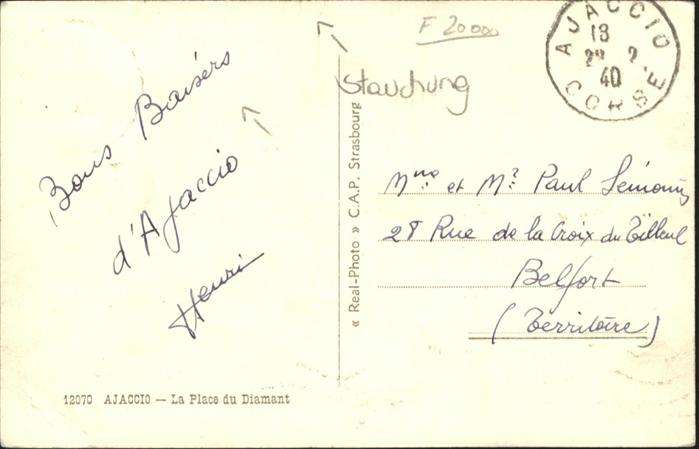 F 20000
AJACCIO
18
2
40
CORSE
Stauchung
Bons Baisers
d'Ajaccio
Henri
« Real-Photo » C.A.P. Strasbourg
Mme et Mr Paul
28 Rue de la Croix du Tilleul
Belfort
(Territoire)
12070 AJACCIO — La Place du Diamant